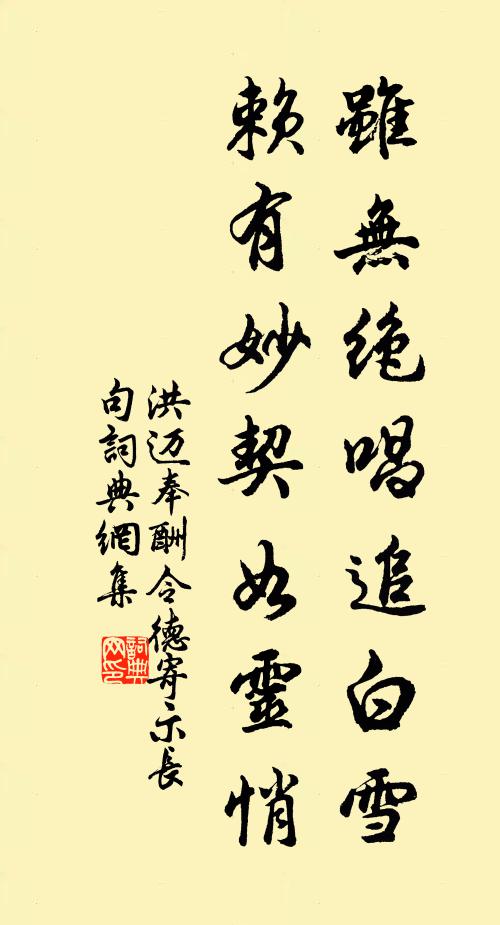 雖無絶唱追白雪
賴有妙契如靈悄
洪迈奉酬令德寄示長
句詞典網集
詞典
网印